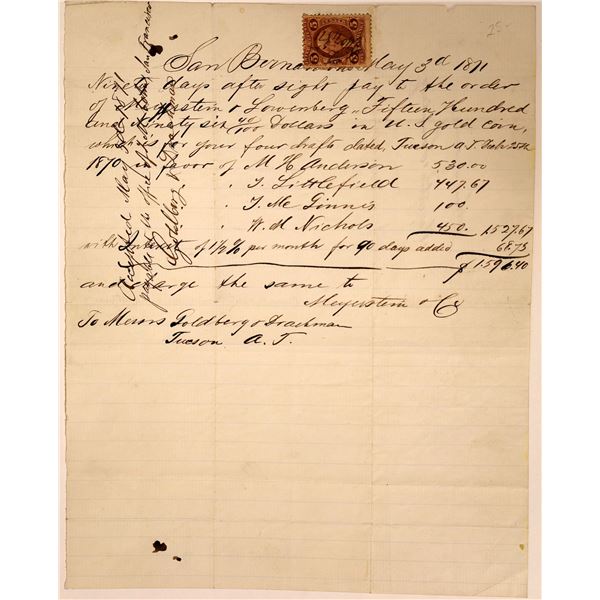 San Bernardino May 3d 1871
Ninety days after sight pay to the order
of Meyerstein & Lowenberg Fifteen Hundred
and Ninety six 40/100 Dollars in U.S. gold coin,
which is for your four drafts dated, Tucson A T Feb 25th
1870, favor of M H Anderson 530.00
" T. Littlefield 447.67
" T. Mc Ginnes 100.
" W. M Nichols 450. 1527.67
with interest of 1 1/2 % per month for 90 days added 68.73
$1596.40
and charge the same to
Meyerstein & Co
To Messrs Goldberg & Drachman
Tucson A. T.
Accepted May 1871
payable at the office of San Francisco
Goldberg & Drachman
5 5
25-